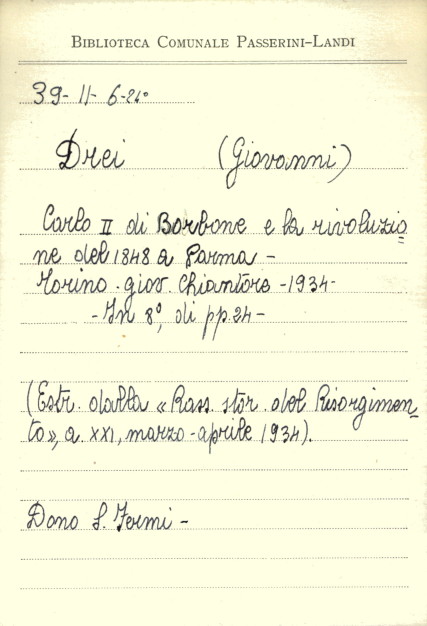 BIBLIOTECA COMUNALE PASSERINI-LANDI
39- 11- 6-21°
Drei (Giovanni)
Carlo II di Borbone e la rivoluzio=
ne del 1848 a Parma -
Torino - giov. Chiantore - 1934 -
- In 8°, di pp. 24 -
(Estr. dalla « Rass. stor. del Risorgimen=
to », a. XXI, marzo - aprile 1934).
Dono S. Fermi -